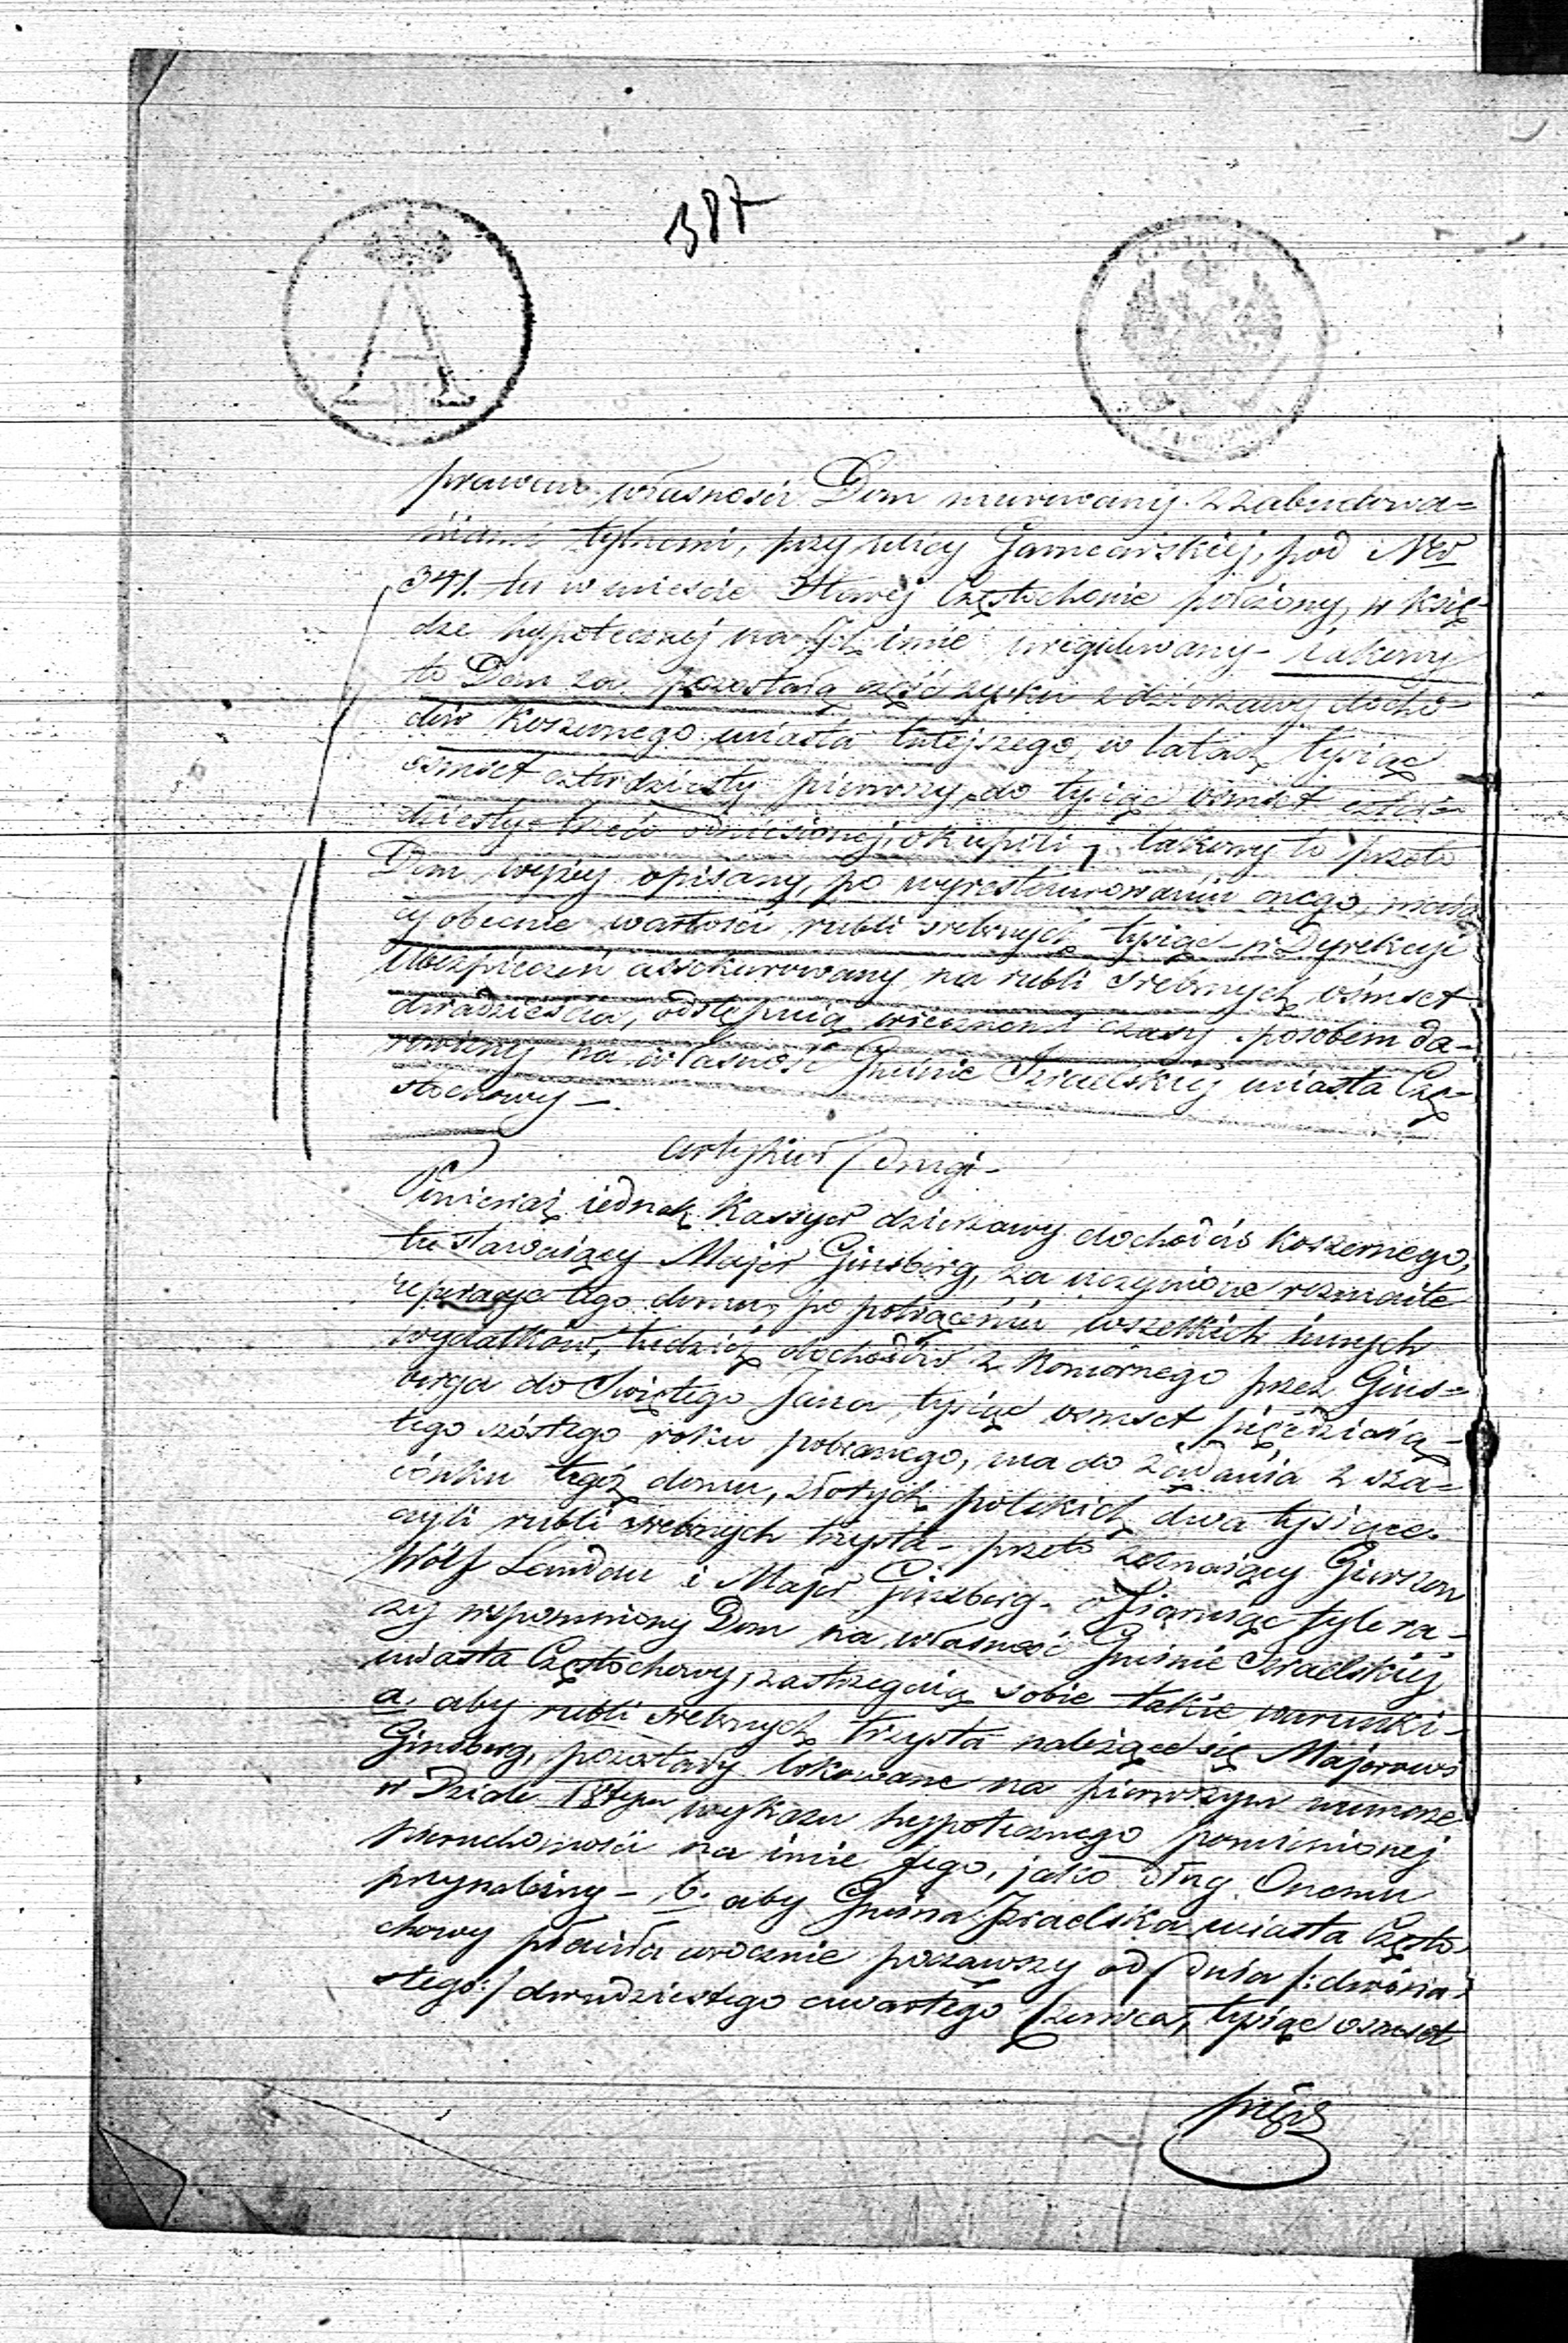 387
prawem własności Dom murowany z zabudowa=
niami tylnemi, przy ulicy Garncarskiej, pod Nro
341. tu w mieście Starej Częstochowie położony, w Księ-
dze hypotecznej na Ich imie uregulowany – iakowy
to Dom za pozostałą część zysku z dzierzawy docho-
dów Koszernego miasta tutejszego, w latach tysiąc
osmset czterdziesty pierwszy, do tysiąc osmset czter-
dziesty trzeci odniesionej, okupili, takowy to przeto
Dom wyżej opisany, po wyrestaurowaniu onego, maią
cy obecnie wartości rubli srebrnych tysiąc – w Dyrekcyi
Ubezpieczeń assekurowany na rubli srebrnych ośmset
dwadzieścia, odstępuią wiecznemi czasy sposobem da-
rowizny na własność Gminie Izraelskiej miasta Czę-
stochowy –
Artykuł Drugi –
Ponieważ iednak Kassyer dzierzawy dochodów koszernego,
tu stawaiący Majer Ginsberg, za uczynione rozmaite
reperacye tego domu, po potrąceniu wszelkich innych
wydatków, tudzież dochodów z Komornego przez Gins=
berga do Świętego Jana, tysiąc osmset pięćdziesią-
tego szóstego roku pobranego, ma do żądania z sza-
cunku tegoż domu, złotych polskich dwa tysiące
czyli rubli srebrnych trzysta – przeto zeznaiący Gierszon
Wolf Landau i Majer Ginsberg – ofiaruiąc tyle ra-
zy wspomniony Dom na własność Gminie Izraelskiej
miasta Częstochowy, zastrzegaią sobie takie warunki –
a. aby rubli srebrnych trzysta należące się Majerowi
Ginsberg, pozostały lokowane na pierwszym numerze
w Dziale IVtym wykazu hypotecznego pomienionej
nieruchomości na imie Jego, jako dług Onemu
przynależny – b. aby Gmina Izraelska miasta Często
chowy płaciła corocznie począwszy od Dnia /: dwóna
stego :/ dwudziestego czwartego Czerwca, tysiąc osmset
pięć